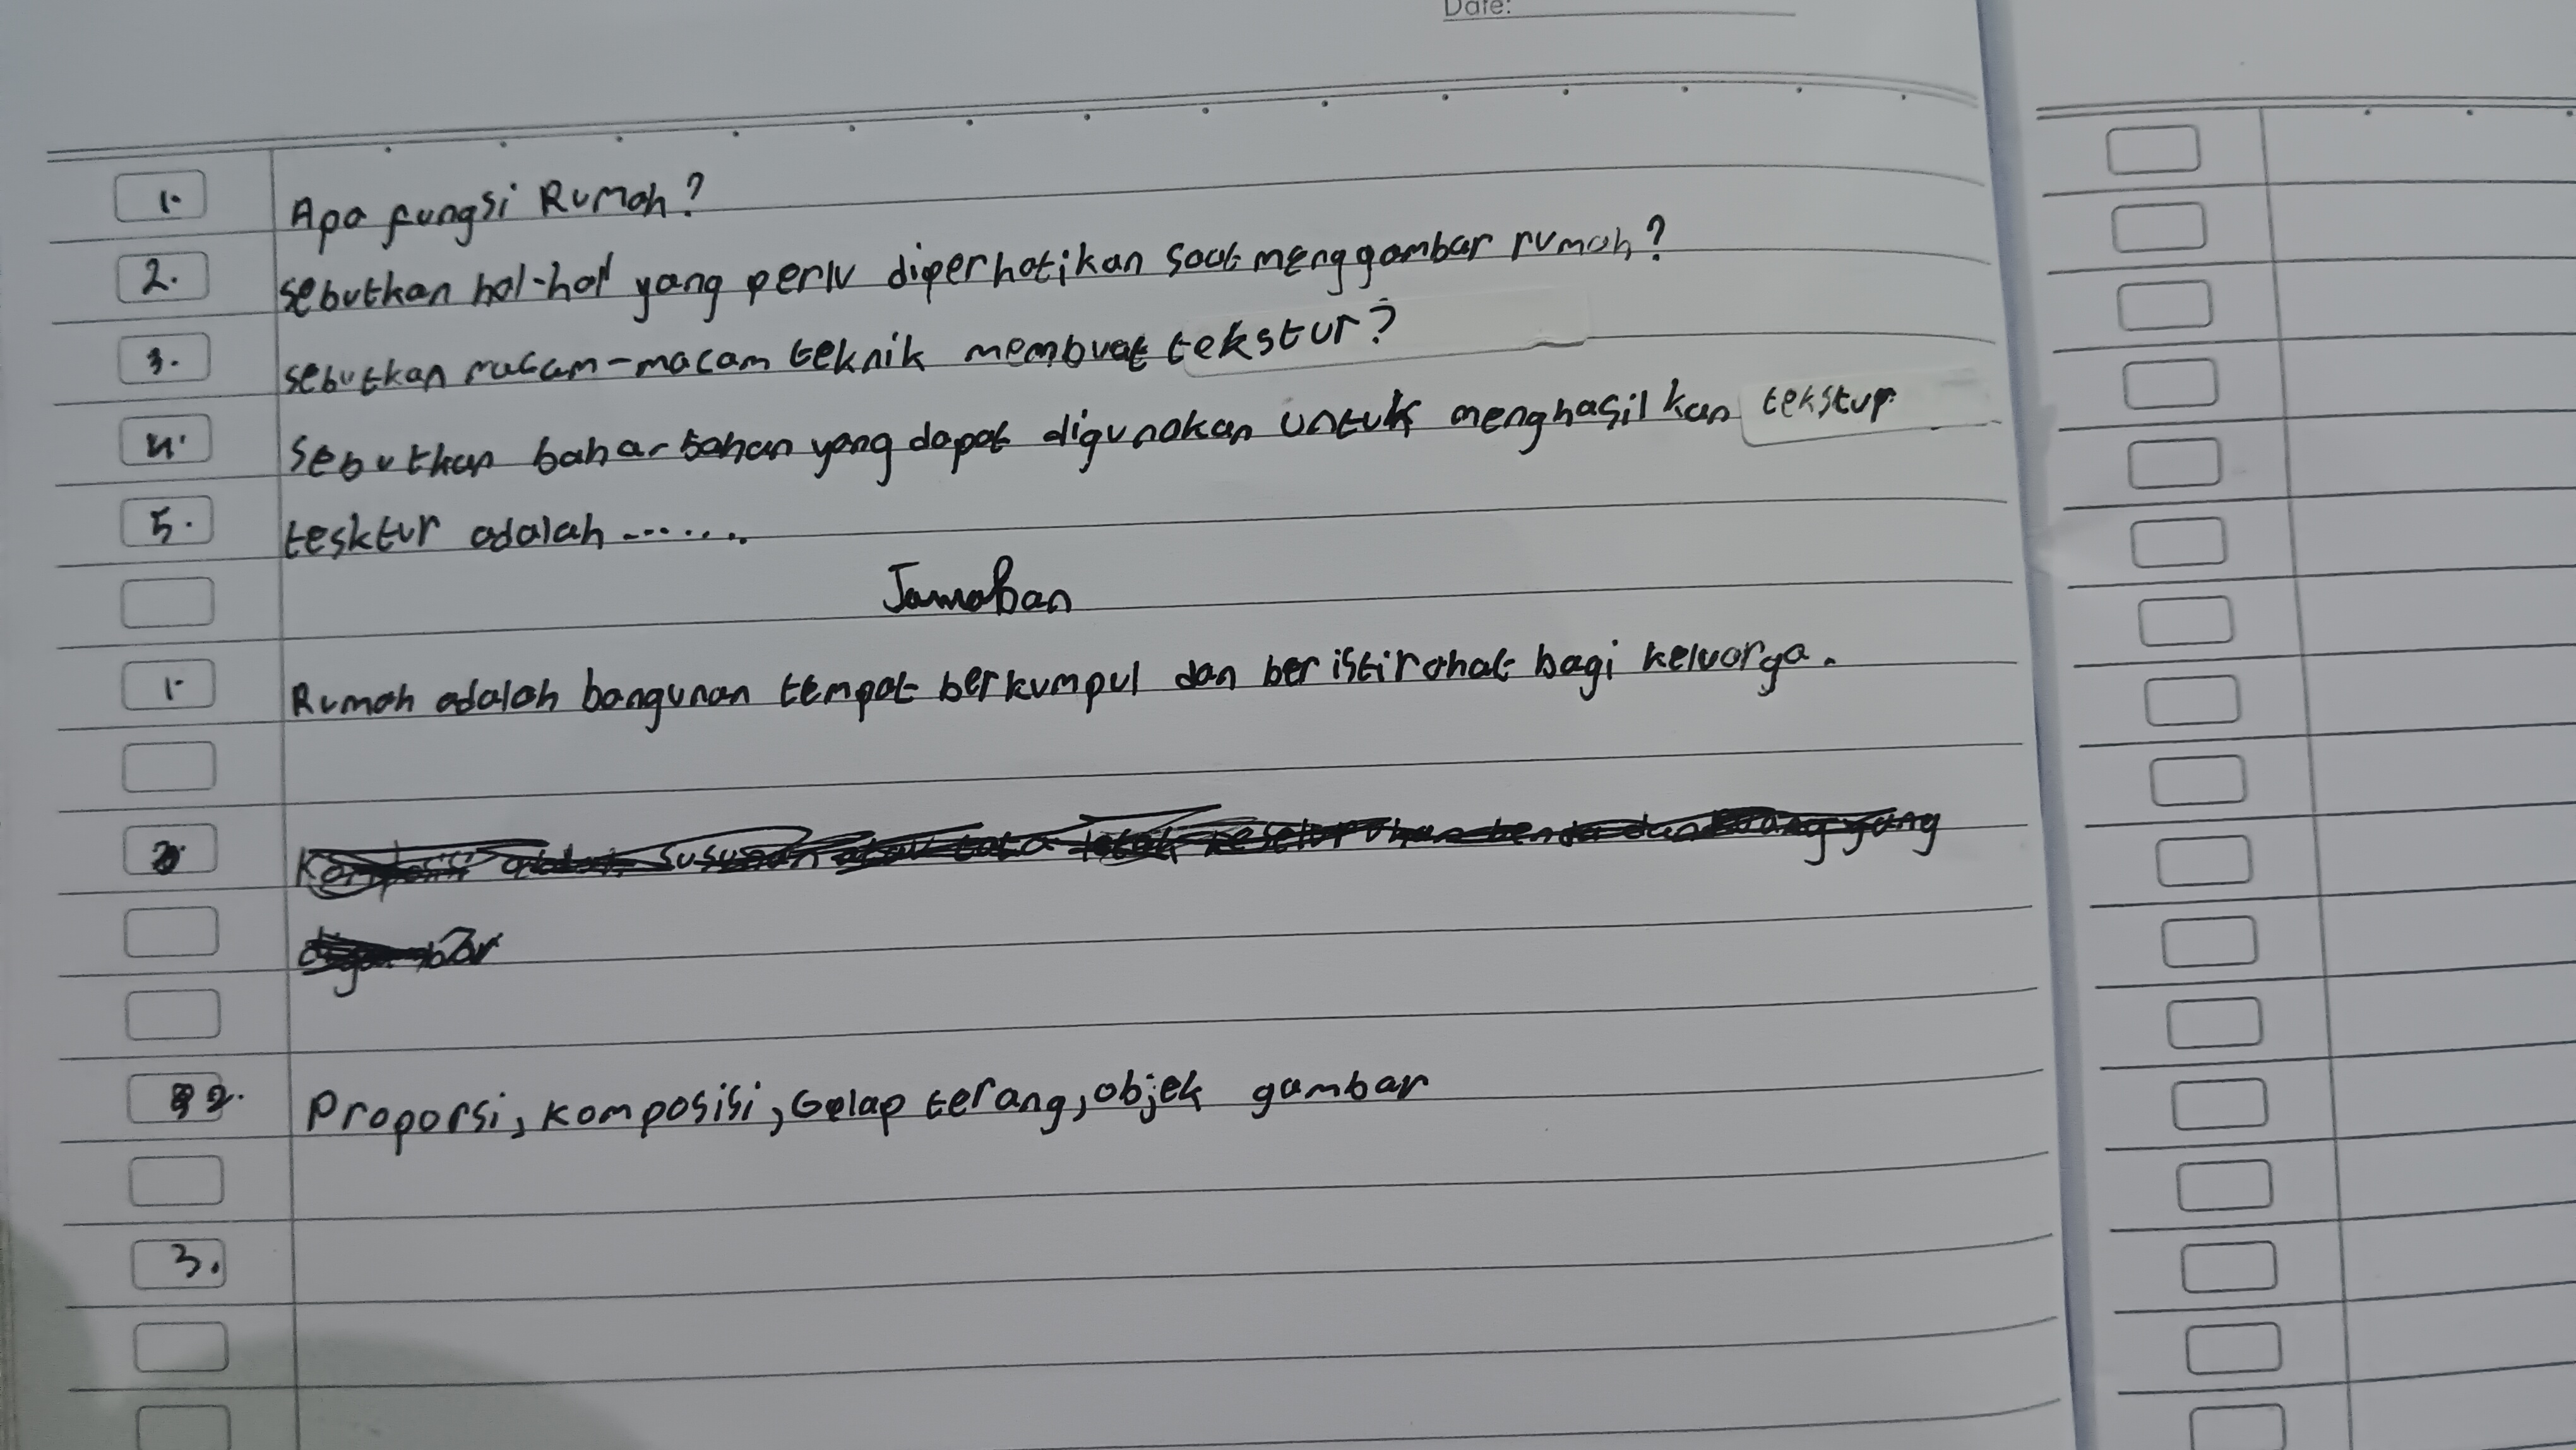 Date:
1. Apa fungsi Rumah?
2. sebutkan hal-hal yang perlu diperhatikan saat menggambar rumah?
3. sebutkan macam-macam teknik membuat tekstur?
4. Sebutkan bahan-bahan yang dapat digunakan untuk menghasilkan tekstur
5. tesktur adalah......
Jawaban
1. Rumah adalah bangunan tempat berkumpul dan beristirahat bagi keluarga.
2. Proporsi, komposisi, Gelap terang, objek gambar
3.